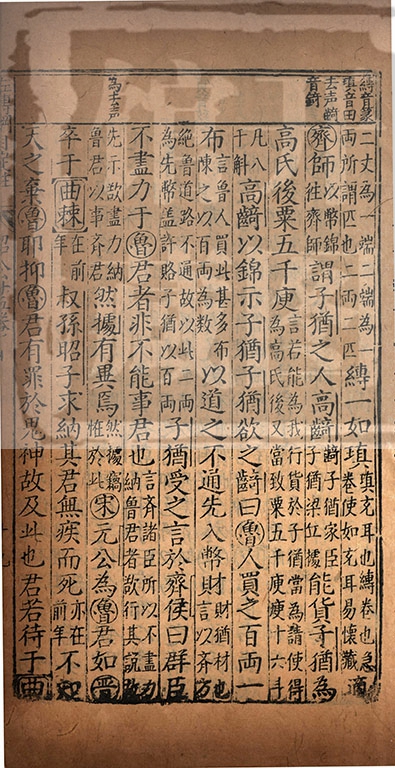 縳音篆
瑱音田
去声齮
音錡
為去声
二丈為一端二端為一
兩所謂匹也二兩二匹
縳一如瑱
瑱充耳也縳卷也急
卷使如充耳易懷藏
適
齊師
以幣錦
徃齊師
謂子猶之人高齮
齮子猶家臣
子猶梁丘據
能貨子猶為
高氏後粟五千庾
言若能為我行貨於子猶當為請使得
為高氏後又當致粟五千庾庾十六斗
凡八
千斛
高齮以錦示子猶子猶欲之齮曰魯人買之百兩一
布
言魯人買此甚多布
陳之以百兩為數
以道之不通先入幣財
財猶材也
言以齊方
絶魯道路不通故以此二兩
為先幣盖許賂子猶以百兩
子猶受之言於齊侯曰群臣
不盡力于魯君者非不能事君也
言齊諸臣所以不盡力
納魯君者欲行其說故
先示欲盡力納
魯君以事齊君
然據有異焉
然據竊
恠於此
宋元公為魯君如晉
卒于曲棘
在前
年
叔孫昭子求納其君無疾而死
亦在
前年
不知
天之棄魯耶抑魯君有罪於鬼神故及此也君若待于曲